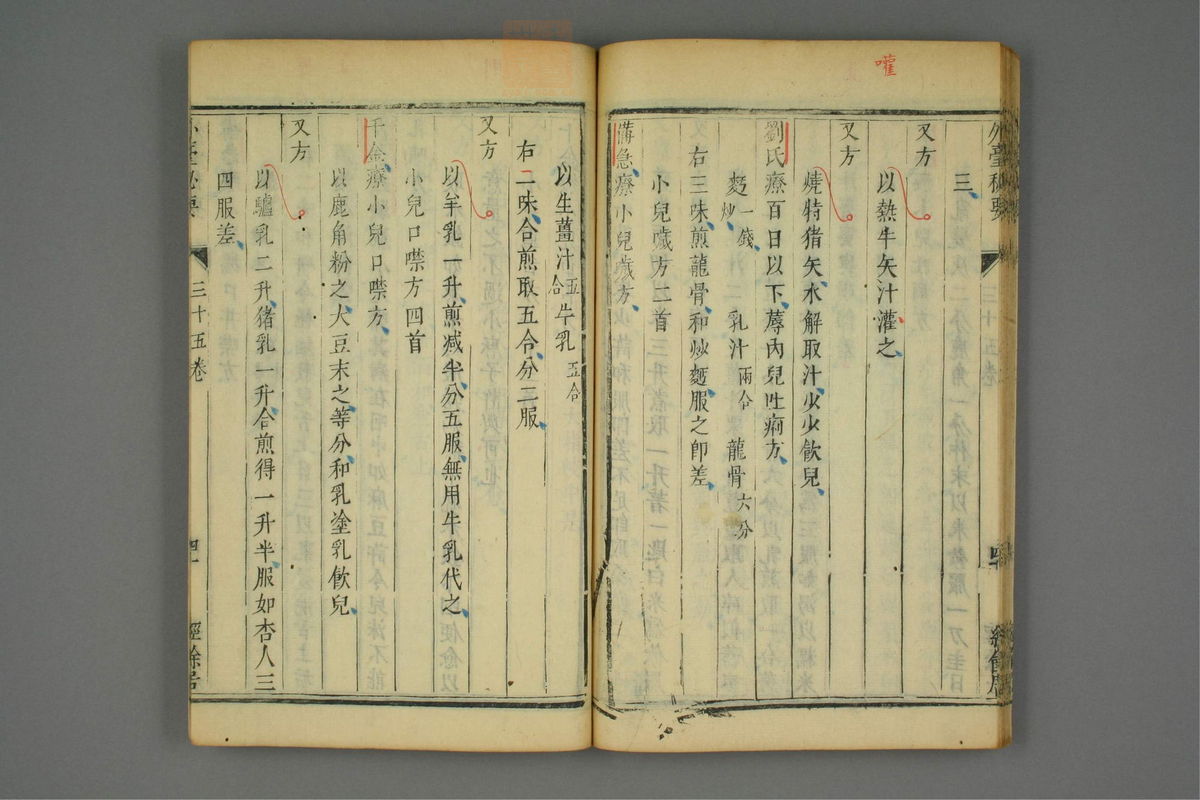 嚾
三
又方
以熱牛矢汁灌之
又方
燒特猪矢水解取汁少少飲兒
劉氏療百日以下蓐內兒吐痢方
麪一錢炒 乳汁兩合 龍骨六分
右三味煎龍骨和炒麪服之卽差
小兒噦方二首
備急療小兒噦方
以生薑汁五合 牛乳五合
右二味合煎取五合分三服
又方
以羊乳一升煎减半分五服無用牛乳代之
小兒口噤方四首
千金療小兒口噤方
以鹿角粉之大豆末之等分和乳塗乳飲兒
又方
以驢乳二升猪乳一升合煎得一升半服如杏人三
四服差
三十五卷
四十一
經餘居